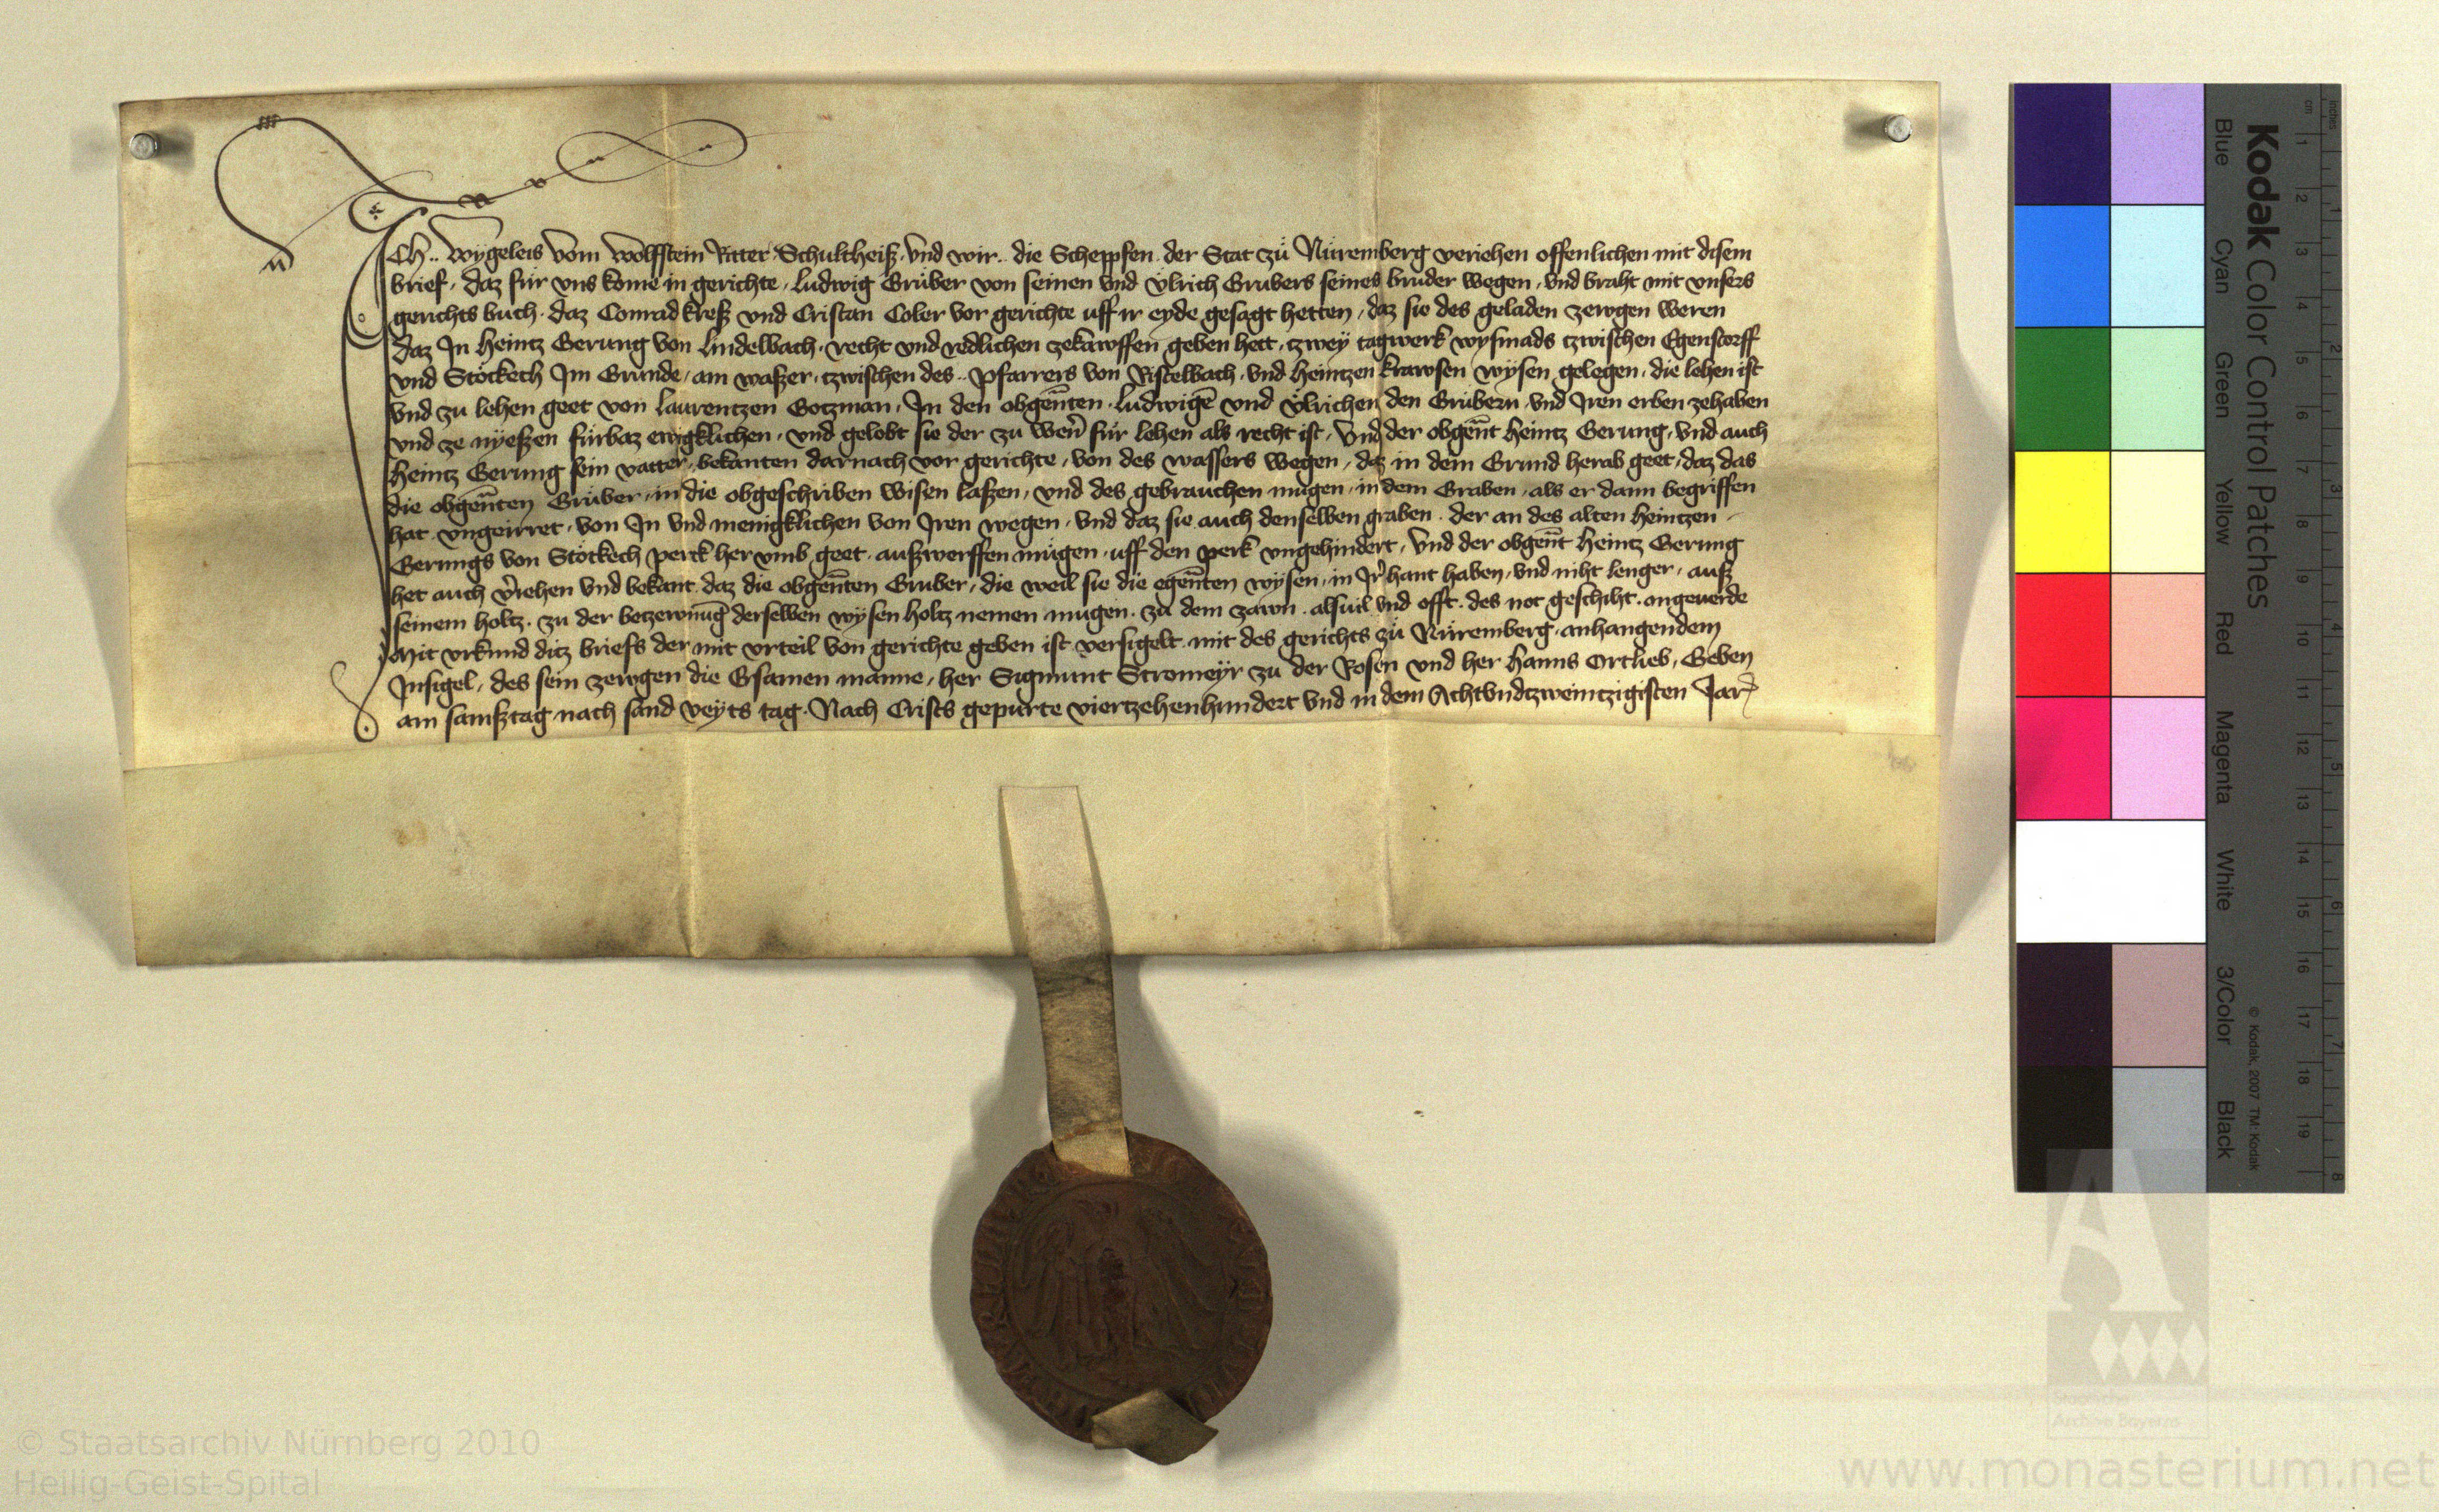 Ich .. Wygeleis vom Wolffstein Ritter Schultheiß vnd wir .. die Scheppfen der Stat zü Nüremberg veriehen offenlichen mit disem
brief, daz für vns kome in gerichte, Ludwig Grüber von seinen vnd Vlrich Grubers seines bruder wegen, vnd braht mit vnsers
gerichts buch, daz Conrad Kreß vnd Cristan Coler vor gerichte uff ir eyde gesagt hetten, daz sie des geladen zewgen weren
daz In Heintz Gerung von Lindelbach, recht vnd redlichen zekawffen geben hett, tzwey tagwerk wysmads tzwischen Egenstorff
vnd Stöckech Im Grunde, am waßer, tzwischen des .. Pfarrers von Ristelbach, vnd Heintzen Krawsen wysen gelegen, die lehen ist
vnd zu lehen geet von Laurentzen Gotzman, In den obgen̄ten Ludwigē vnd Vlrichen den Grübern vnd Iren erben zehaben
vnd ze nyeßen fürbaz ewigklichen, vnd gelobt sie der zu wern̄ für lehen als recht ist, vnd der obgen̄t Heintz Gerung, vnd auch
Heintz Gerung sein vatter, bekanten darnach vor gerichte, von des wassers wegen, daz in dem Grund herab geet, daz das
die obgen̄ten Grüber, in die obgeschriben wisen laßen, vnd des gebrauchen mügen, in dem Graben, als er dann begriffen
hat vngeirret, von In vnd menigklichen von Iren wegen, vnd daz sie auch denselben graben, der an des alten Heintzen
Gerungs von Stöckech perck her vmb geet, außwerffen mügen, uff den perk vngehindert, vnd der obgen̄t Heintz Gerung
het auch v̄iehen vnd bekant daz die obgen̄ten Gruber, die weil sie die egen̄ten wysen, in Ir̄ hant haben, vnd niht lenger, auß
seinem holtz, zu der betzewnūg derselben wysen holtz nemen mügen, zu dem zawn, alsuil vnd offt, des not geschiht, angeuerde
Mit vrkund ditz briefs der mit vrteil von gerichte geben ist versigelt mit des gerichts zü Nüremberg anhangendem
Insigel, des sein zewgen die Ersamen manne, her Sigmunt Stromeyr zu der Rosen vnd her Hanns Ortlieb, Geben
am samßtag nach sand veyts tag, Nach Crists gepurte viertzehenhundert vnd in dem Achtvndtzweintzigisten Jar
Kodak Color Control Patches
Blue Cyan Green Yellow Red Magenta White 3/Color Black
© Kodak, 2007 TM: Kodak
cm 1 2 3 4 5 6 7 8 9 10 11 12 13 14 15 16 17 18 19
inches 1 2 3 4 5 6 7 8
Staatliche
Archive Bayerns
© Staatsarchiv Nürnberg 2010
Heilig-Geist-Spital
www.monasterium.net